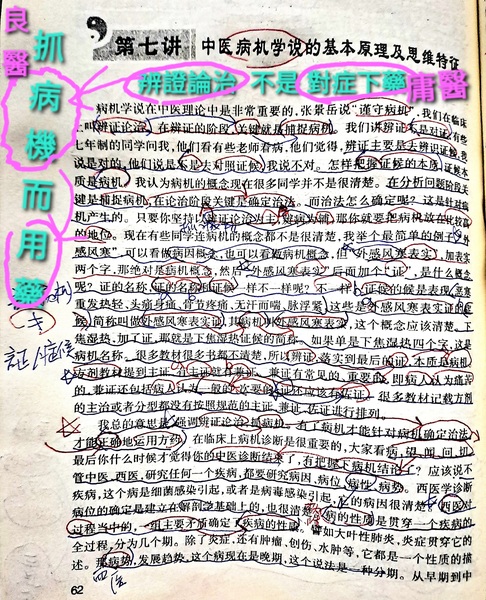 第七讲 中医病机学说的基本原理及思维特征
辨證論治 不是 對症下藥 庸醫
良醫
抓病機而用藥
病机学说在中医理论中是非常重要的,张景岳说“谨守病机”,我们在临床
上叫辨证论治,在辨证的阶段,关键就是捕捉病机。我们讲辨证不是对症,有些
七年制的同学问我,他们看有些老师看病,他们觉得,辨证主要是去辨识证候,我
说是对的,他们说是不是去对照证候?我说不对。怎样把握证候的本质,证候本
质是病机。我认为病机的概念现在很多同学并不是很清楚。在分析问题阶段关
键是捕捉病机,在论治阶段关键是确定治法。而治法怎么确定呢?这是针对病
机产生的。只要你坚持以辨证论治为主,辨病为辅,那你就要把病机放在比较高
的地位。现在有些同学连病机的概念都不是很清楚,我举个最简单的例子,“外
感风寒”,可以看做病因概念,也可以看做病机概念,但“外感风寒表实”,加表实
两个字,那绝对是病机概念,然后“外感风寒表实”后面加个“证”,是什么概念
呢?证的名称,证的名称和证候一样不一样呢?不一样,证候的候是表现,恶寒
重发热轻,头痛身痛,骨节疼痛,无汗而喘,脉浮紧,这些是外感风寒表实证的证
候,简称叫做外感风寒表实证,其病机叫外感风寒表实,这个概念应该清楚。下
焦湿热,加了证,那就是下焦湿热证候的简称。如果单是下焦湿热四个字,这是
病机名称。很多教材很多书都不清楚,所以辨证,落实到最后的证,本质是病机。
方剂教材提到主证,有主证就有兼证,兼证有常见的、重要的,即病人认为痛苦
的,兼证还包括病人认为一般的、次要的,证不应该有佐证。很多教材记载方剂
的主治或者分型都没有按照规范的主证、兼证、佐证进行排列。
我总的意思是强调辨证论治,抓病机。有了病机才能针对病机确定治法,
才能正确地运用方药。在临床上病机诊断是很重要的,大家看病,望、闻、问、切,
最后你什么时候才觉得你的中医诊断结束了,有把握下病机结论了?应该说不
管中医、西医,研究任何一个疾病,都要研究病因、病位、病性、病势。西医学诊断
疾病,这个病是细菌感染引起,或者是病毒感染引起,它的病因很清楚。西医对
病位的确定是建立在解剖学基础上的,也很清楚。病的性质是贯穿一个疾病的
过程当中的,一组主要矛盾确定了疾病的性质。譬如大叶性肺炎,炎症贯穿它的
全过程,分为几个期。除了炎症,还有肿瘤、创伤、水肿等,它都是一个性质的描
述。那病势,发展趋势,这个病现在是晚期,这个说法是一种分期。从早期到中
62
西医